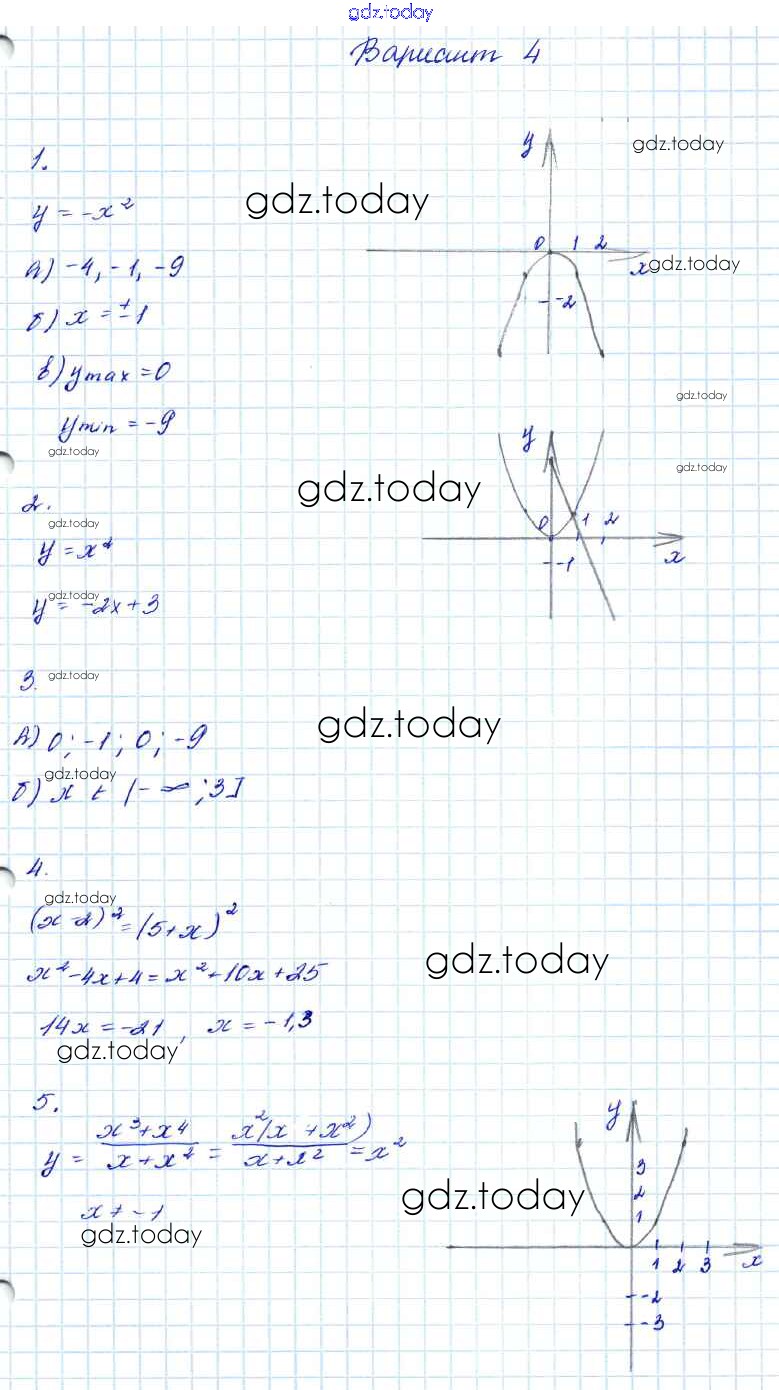 gdz.today
Вариант 4
1.
y = -x²
а) -4, -1, -9
б) x = ±1
в) y max = 0
y min = -9
y
0 1 2
x
-2
gdz.today
gdz.today
gdz.today
gdz.today
gdz.today
gdz.today
gdz.today
2.
gdz.today
y = x²
gdz.today
y = -2x + 3
y
0 1 2
x
-1
3.
gdz.today
а) 0; -1; 0; -9
gdz.today
gdz.today
б) x ∈ (-∞; 3]
4.
gdz.today
(x - 2)² = (5 + x)²
x² - 4x + 4 = x² + 10x + 25
gdz.today
14x = -21, x = -1,3
gdz.today
5.
y = (x³ + x⁴)/(x + x²) = x²(x + x²)/(x + x²) = x²
x ≠ -1
gdz.today
gdz.today
y
3
2
1
1 2 3
x
-2
-3